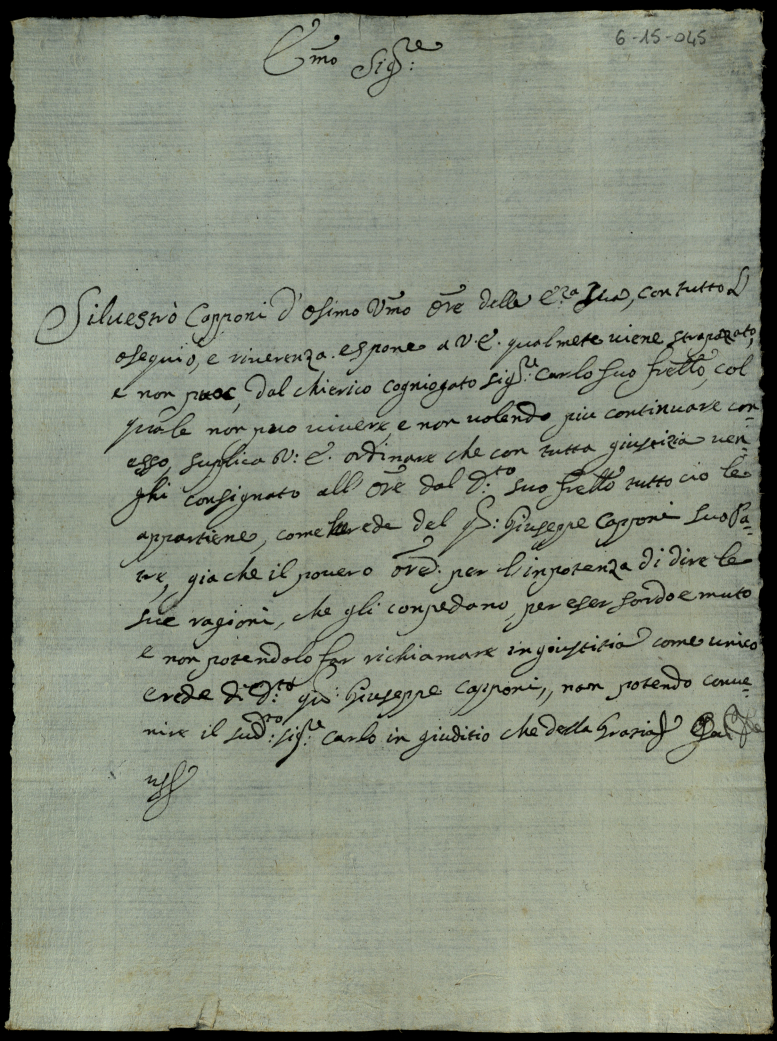 6-15-045
E͞mo Sig.re:
Silvestro Capponi d'Osimo V͞mo O͞re della E.za Sua, con tutto L
osequio, e riverenza espone a V. E. qualmete viene strapazato,
e non puoc, dal chierico cogniogato Sig.re: Carlo suo frello, col
quale non puo vivere e non volendo piu continuare con
esso, suplica V: E. ordinare che con tutta giustitia ven-
ghi consignato all' O͞re dal d.to: suo frello tutto cio le
appartiene, come herede del q͞: Giuseppe Capponi suo Pa-
tre, gia che il povero O͞re: per l'inpotenza di dire le
sue ragioni, che gli conpedano, per eser sordo e muto
e non potendolo far richiamare in giustitia come unico
erede di d.to: gia: Giuseppe Capponi, nam potendo conve-
nire il sud.to: Sig.re: Carlo in giuditio che della Grazia